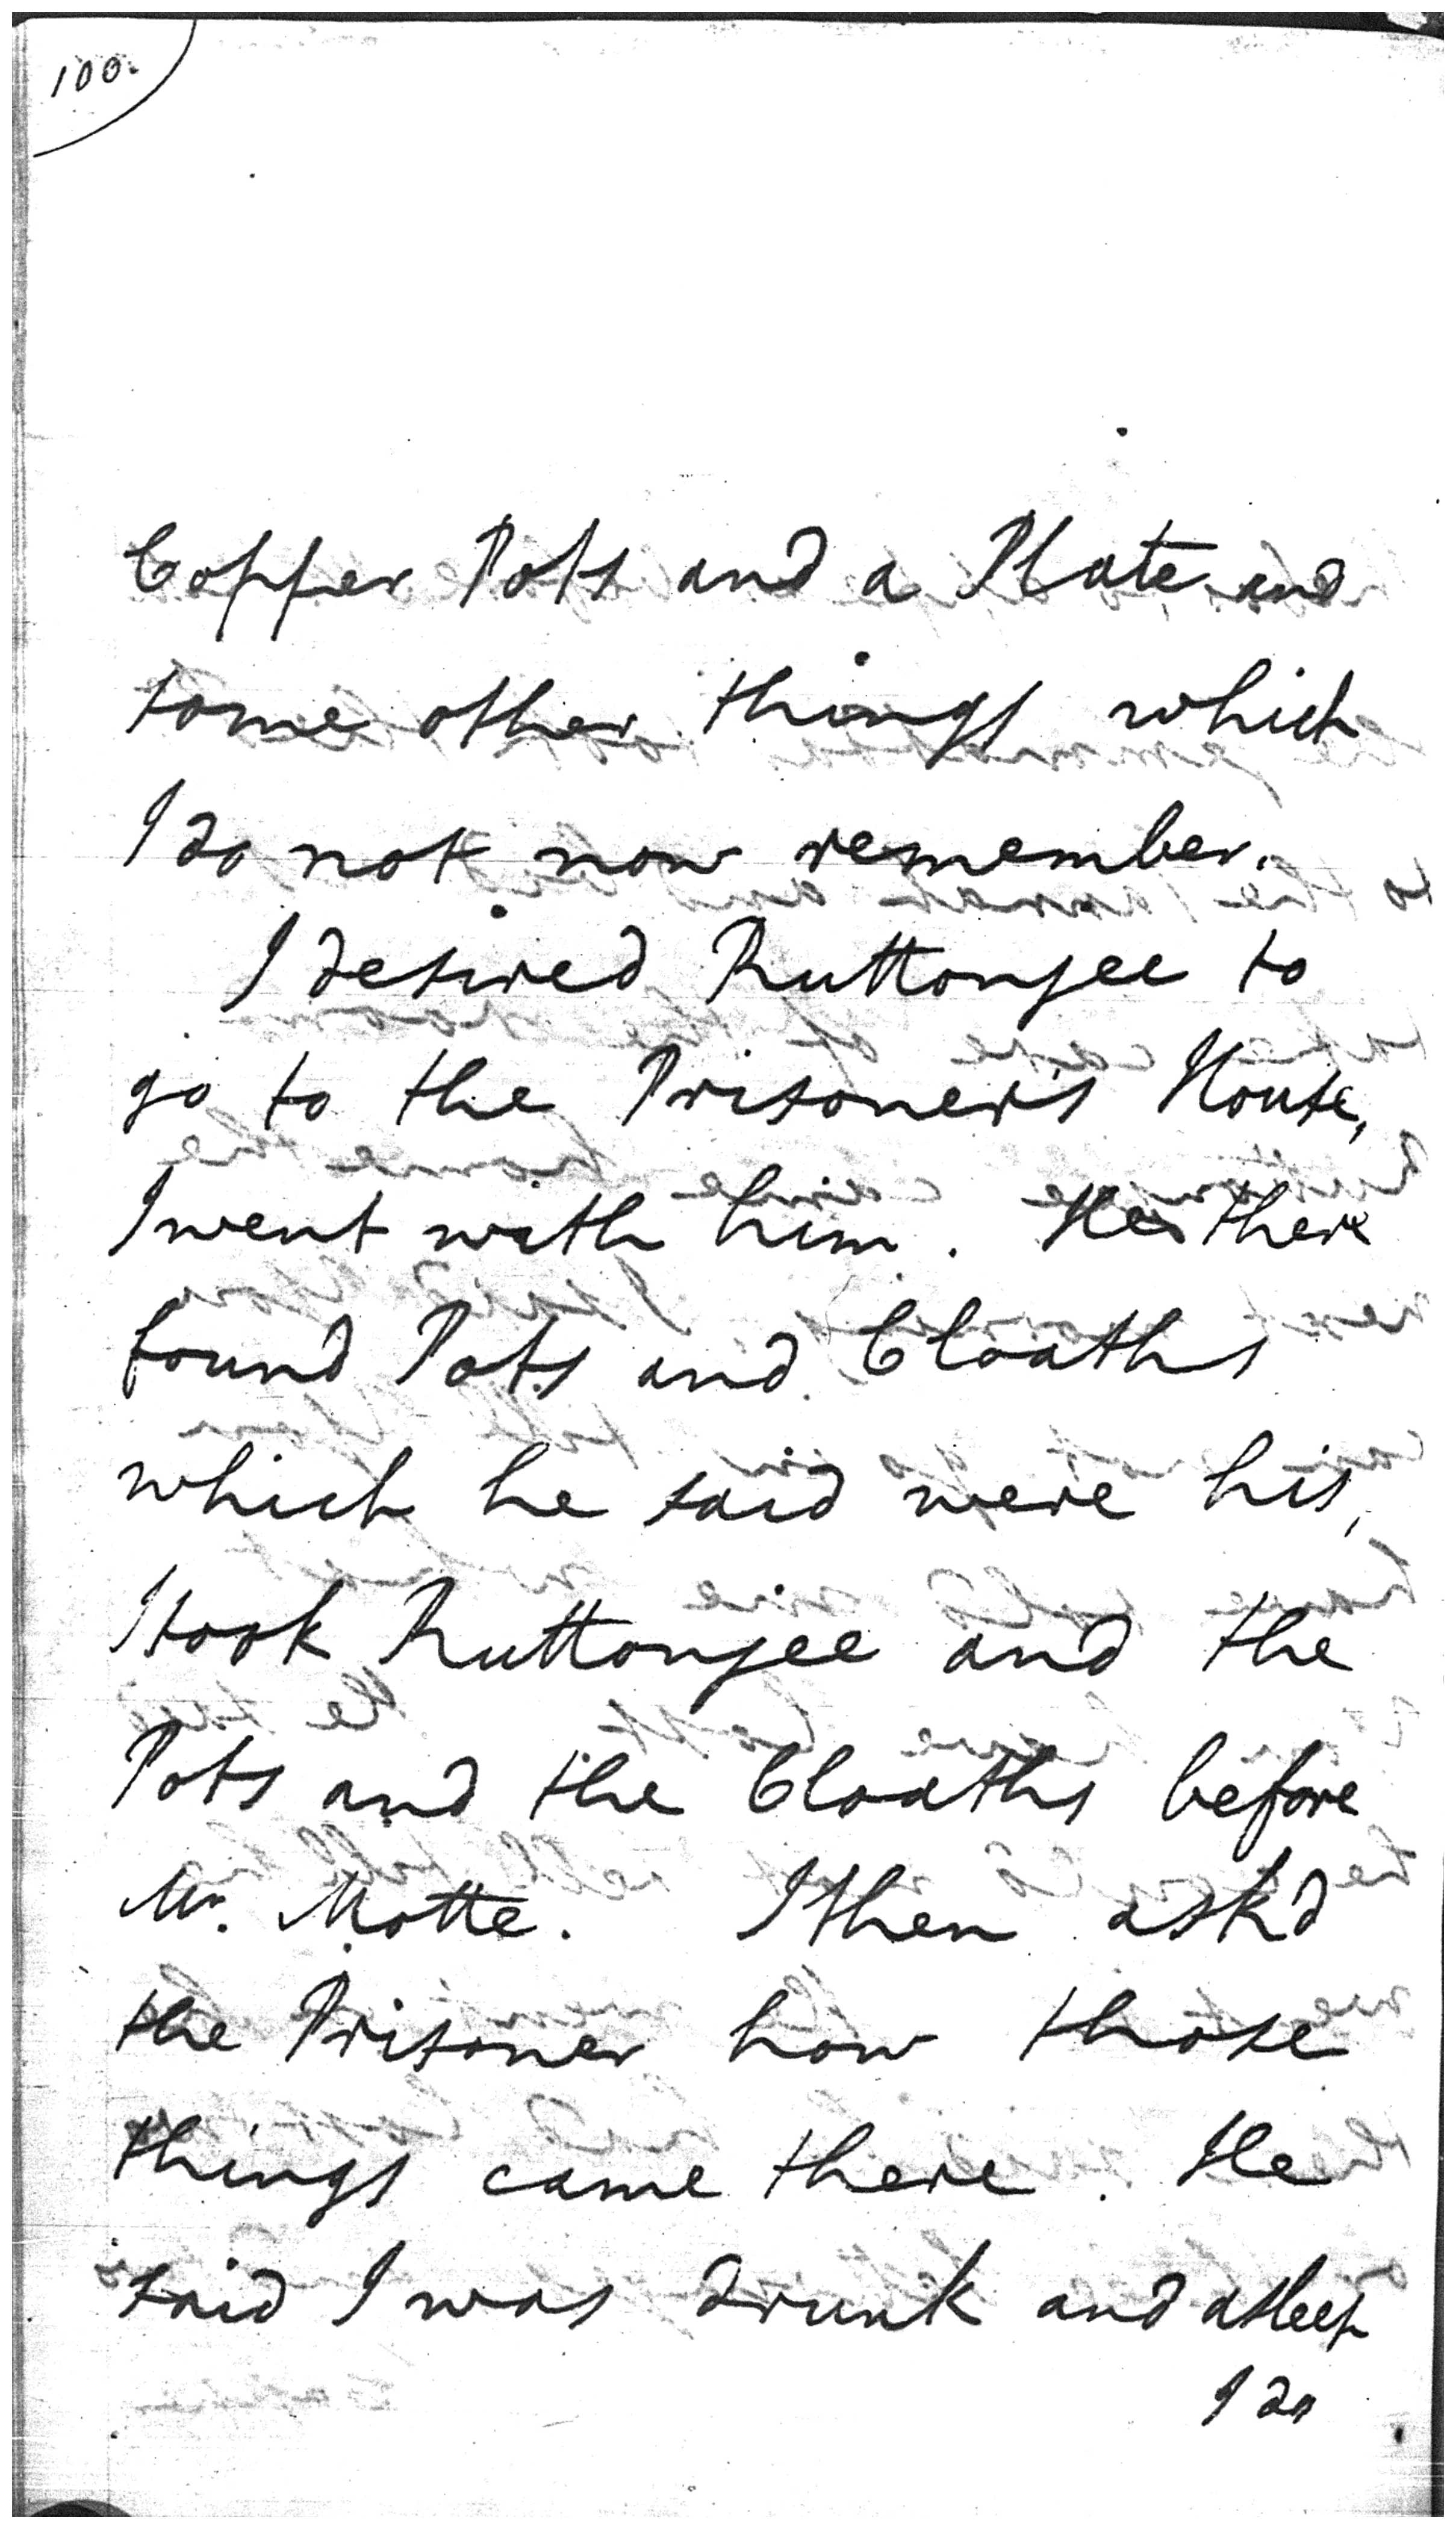 100.
Copper Pots and a Plate and
some other things which
I do not now remember.
I desired Ruttonjee to
go to the Prisoner's House,
I went with him. He there
found Pots and Cloaths
which he said were his,
I took Ruttonjee and the
Pots and the Cloaths before
Mr. Motte. I then ask'd
the Prisoner how those
things came there. He
said I was drunk and asleep
I do